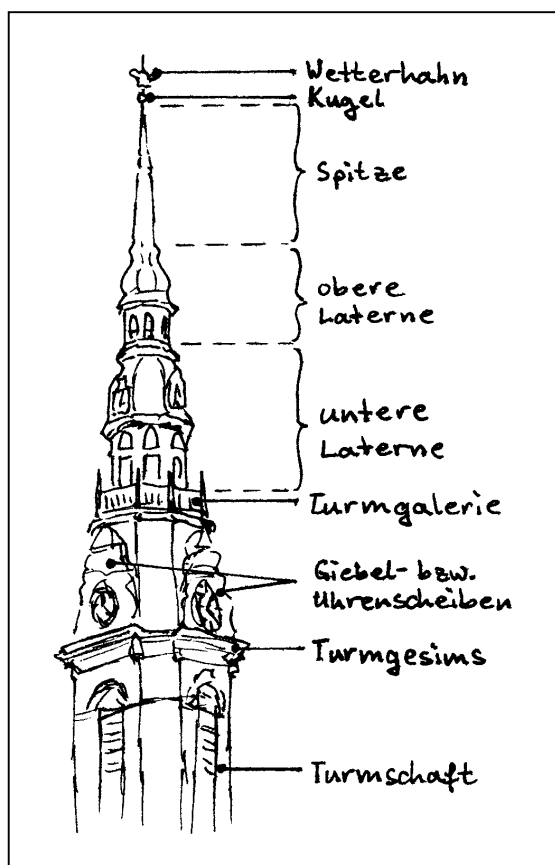 Wetterhahn
Kugel
Spitze
obere
Laterne
untere
Laterne
Turmgalerie
Giebel- bzw.
Uhrenscheiben
Turmgesims
Turmschaft